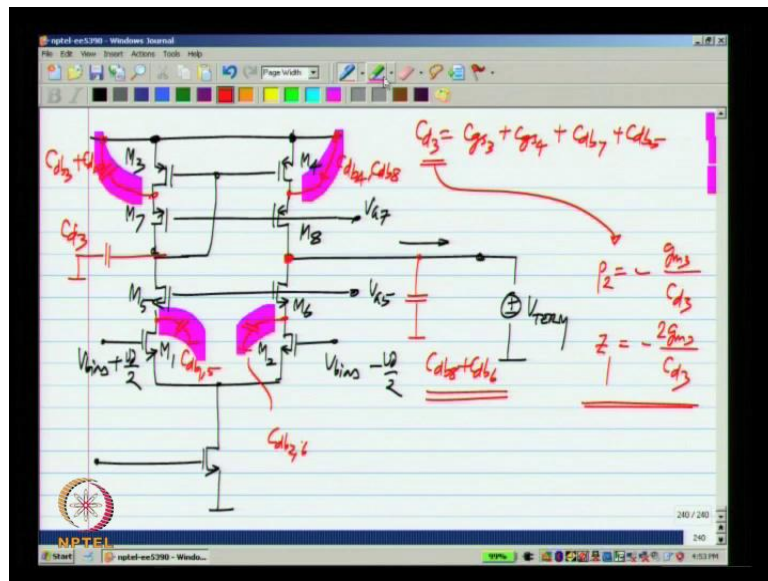 nptel-ee5390 - Windows Journal
File Edit View Insert Actions Tools Help
Page Width
Cd3 = Cgs3 + Cgs4 + Cdb7 + Cdb5
M3
M4
Cdb4, Cdb8
M7
M8
VG7
Cd3
P2 = - gm3 / Cd3
M5
M6
VG5
VTERM
Z = - 2gm3 / Cd3
Vbias + vd/2
M1
Cdb1,5
M2
Vbias - vd/2
Cdb8 + Cdb6
Cdb2,6
240 / 240
240
NPTEL
Start
nptel-ee5390 - Windo...
99%
4:53 PM